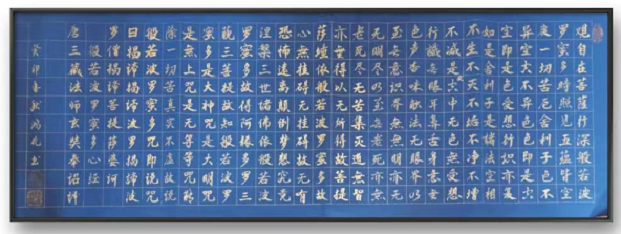 觀自在菩薩行深般若波
羅蜜多時照見五蘊皆空
度一切苦厄舍利子色不
異空空不異色色即是空
空即是色受想行識亦復
如是舍利子是諸法空相
不生不滅不垢不淨不增
不減是故空中无色无受想
行識无眼耳鼻舌身意无
色聲香味觸法无眼界乃
至无意識界无无明亦无
无明盡乃至无老死亦无
老死盡无苦集滅道无智
亦无得以无所得故菩提
薩埵依般若波羅蜜多故
心无罣礙无罣礙故无有
恐怖遠離顛倒夢想究竟
涅槃三世諸佛依般若波
羅蜜多故得阿耨多羅三
藐三菩提故知般若波羅
蜜多是大神咒是大明咒
是无上咒是无等等咒能
除一切苦真實不虛故說
般若波羅蜜多咒即說咒
曰揭諦揭諦波羅揭諦波
羅僧揭諦菩提薩婆訶
般若波羅蜜多心經
唐三藏法師玄奘奉詔譯
癸卯春書